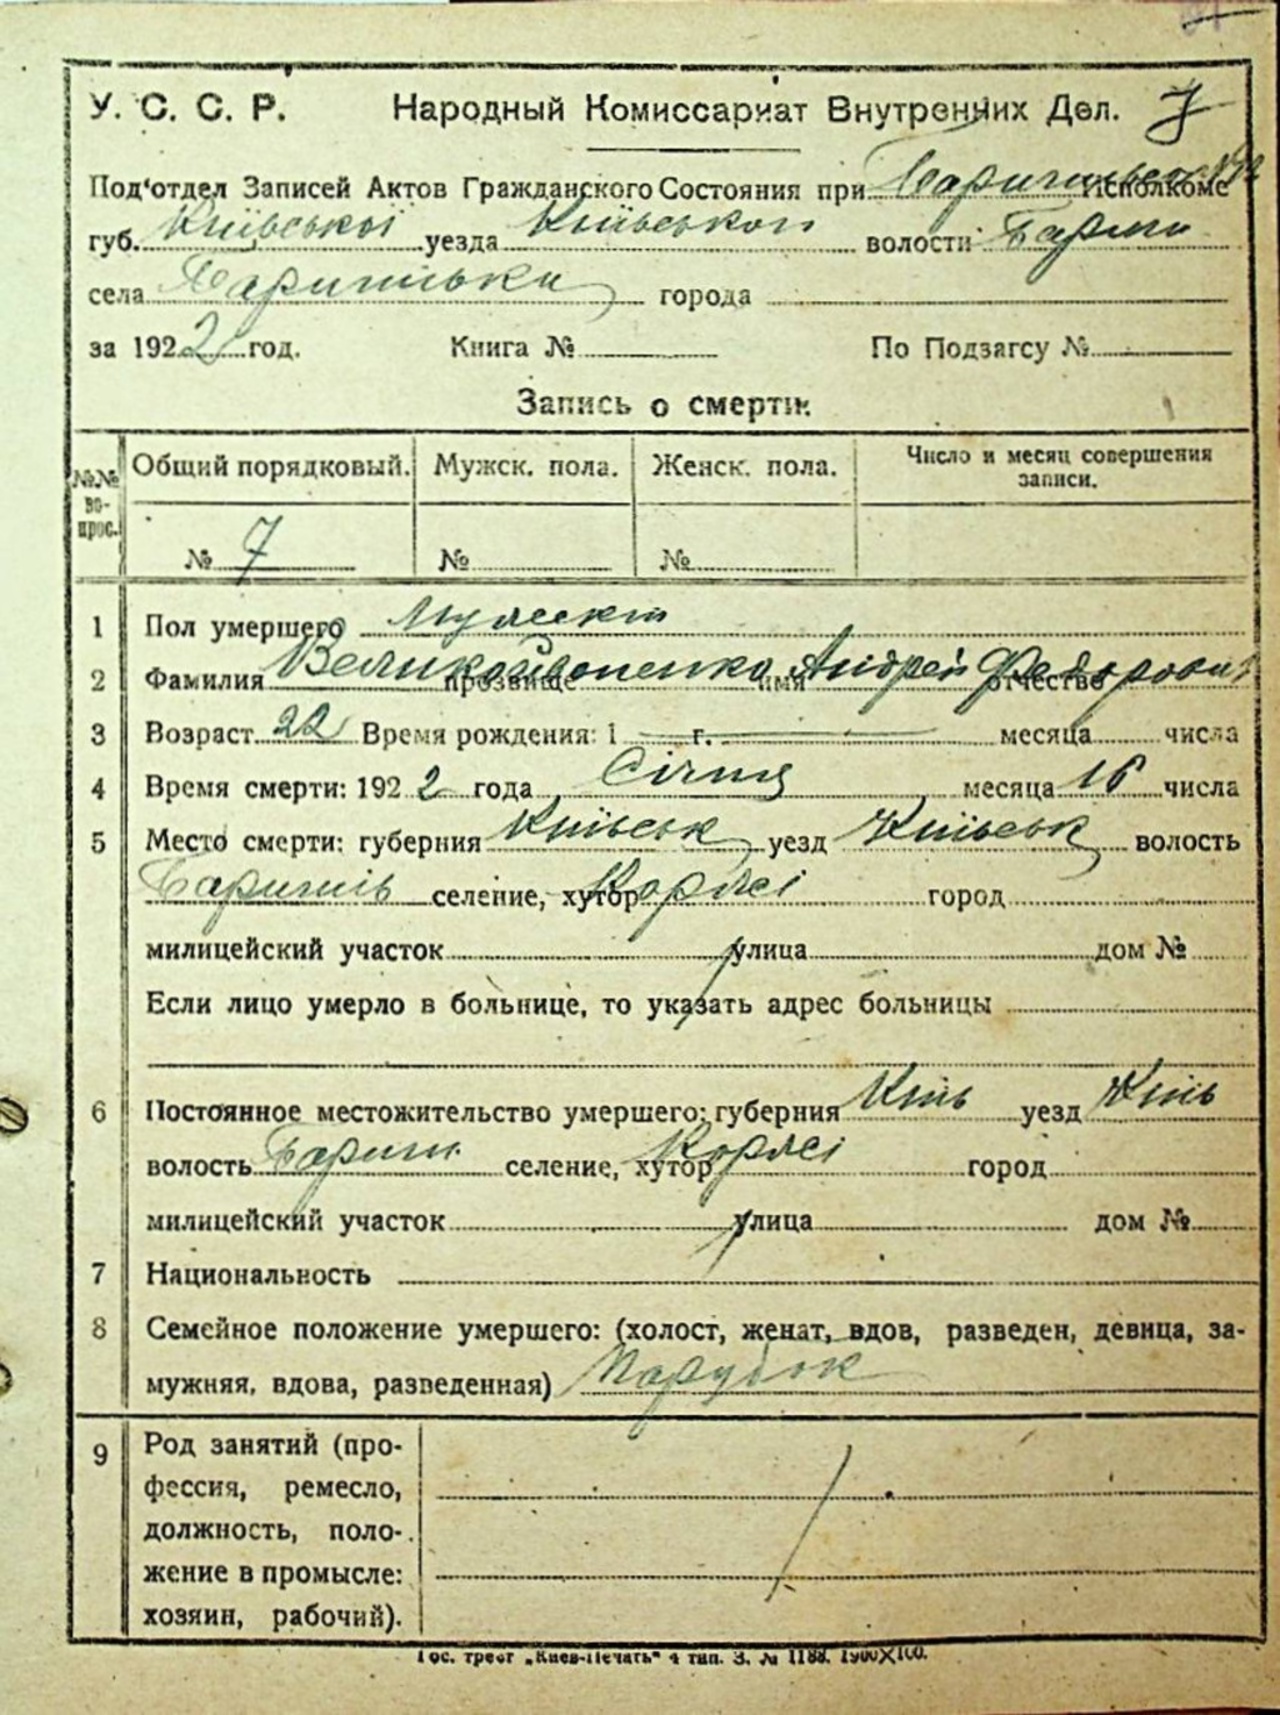 У. С. С. Р. Народный Комиссариат Внутренних Дел. 7
Под'отдел Записей Актов Гражданского Состояния при Исполкоме
губ. Київської уезда Київського волости Бариш
села города
за 1922 год. Книга № По Подзагсу №
Запись о смерти.
№№ вопрос. Общий порядковый. Мужск. пола. Женск. пола. Число и месяц совершения записи.
№ 7 № №
1 Пол умершего
2 Фамилия прозвище имя Андрей отчество Федорович
3 Возраст 22 Время рождения: 1 г. месяца числа
4 Время смерти: 1922 года Січня месяца 16 числа
5 Место смерти: губерния Київськ уезд Київськ волость
селение, хутор Коржі город
милицейский участок улица дом №
Если лицо умерло в больнице, то указать адрес больницы
6 Постоянное местожительство умершего: губерния Київ уезд Київ
волость Бариш селение, хутор Коржі город
милицейский участок улица дом №
7 Национальность
8 Семейное положение умершего: (холост, женат, вдов, разведен, девица, за-
мужняя, вдова, разведенная) Парубок
9 Род занятий (про-
фессия, ремесло,
должность, поло-
жение в промысле:
хозяин, рабочий).
Гос. трест „Киев-Печать" 4 тип. З. № 1188. 1900×100.